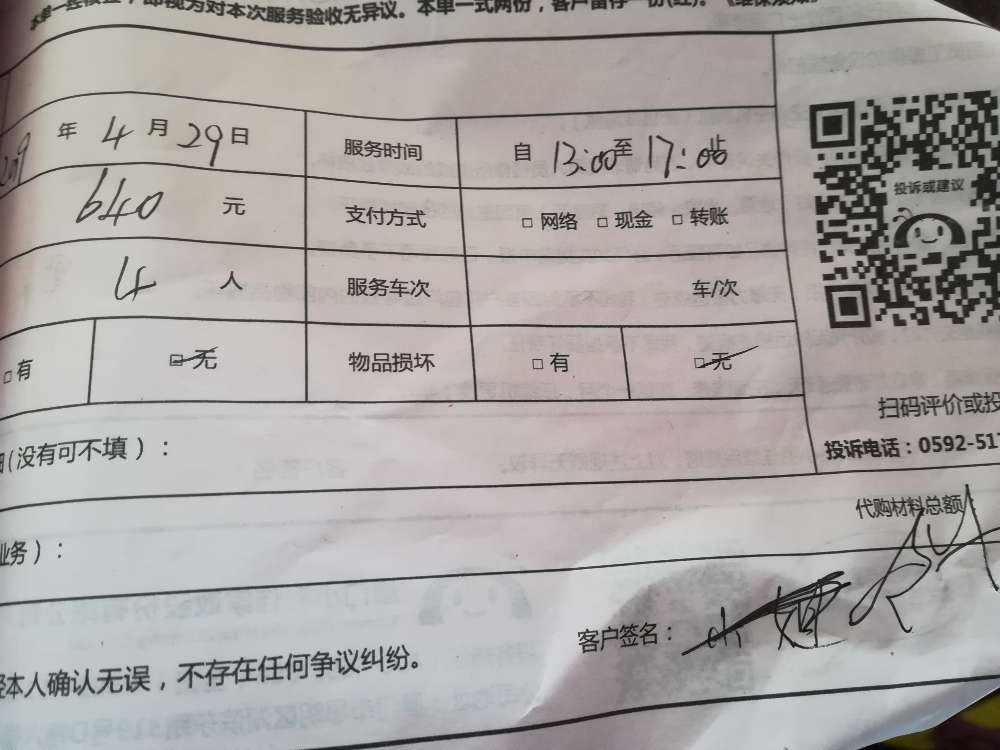 本单一经核查，即视为对本次服务验收无异议。本单一式两份，客户留存一份(红)。
年 4 月 29 日 服务时间 自 13:00 至 17:00 止
投诉或建议
640 元 支付方式 □ 网络 □ 现金 □ 转账
4 人 服务车次 车/次
□ 有 □ 无 物品损坏 □ 有 □ 无
扫码评价或投
(没有可不填）：
投诉电话：0592-517
代购材料总额
业务）：
客户签名：
本人确认无误，不存在任何争议纠纷。